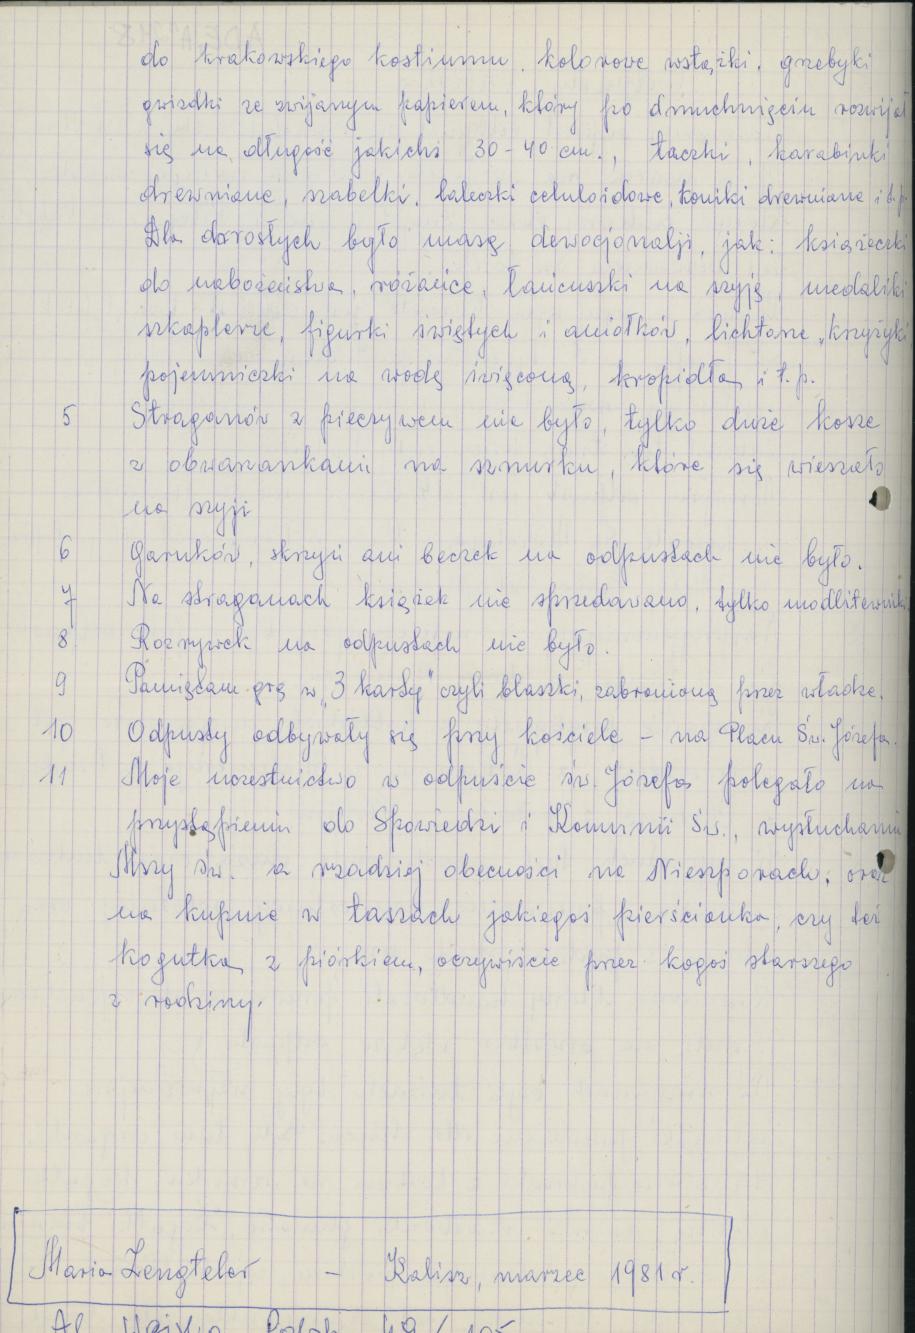 do krakowskiego kostiumu, kolorowe wstążki, grzebyki
gwizdki ze zwijanym papierem, który po dmuchnięciu rozwijał
się na długość jakichś 30-40 cm., taczki, karabinki
drewniane, szabelki, laleczki celuloidowe, koniki drewniane i t.p.
Dla dorosłych było masę dewocjonalji, jak: książeczki
do nabożeństwa, różańce, łańcuszki na szyję, medaliki
szkaplerze, figurki świętych i aniołków, lichtarze, krzyżyki
pojemniczki na wodę święconą, kropidła i t.p.
5 Straganów z pieczywem nie było, tylko duże kosze
z obwarzankami na sznurku, które się wieszało
na szyji
6 Garnków, skrzyń ani beczek na odpustach nie było.
7 Na straganach książek nie sprzedawano, tylko modlitewniki
8 Rozrywek na odpustach nie było.
9 Pamiętam grę w „3 karty" czyli blaszki, zabronioną przez władze.
10 Odpusty odbywały się przy kościele - na Placu Św. Józefa.
11 Moje uczestnictwo w odpuście św. Józefa polegało na
przystąpieniu do Spowiedzi i Komunii Św., wysłuchaniu
Mszy św. a rzadziej obecności na Nieszporach, oraz
na kupnie w taszach jakiegoś pierścionka, czy też
kogutka z piórkiem, oczywiście przez kogoś starszego
z rodziny.
Maria - Kalisz, marzec 1981 r.